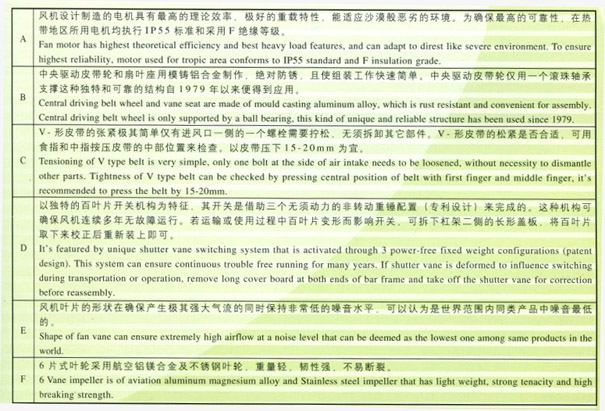 A
风机设计制造的电机具有最高的理论效率，极好的重载特性，能适应沙漠般恶劣的环境。为确保最高的可靠性，在热
带地区所用电机均执行 IP55 标准和采用 F 绝缘等级。
Fan motor has highest theoretical efficiency and best heavy load features, and can adapt to direst like severe environment. To ensure
highest reliability, motor used for tropic area conforms to IP55 standard and F insulation grade.
B
中央驱动皮带轮和扇叶座用模铸铝合金制作，绝对防锈，且使组装工作快速简单。中央驱动皮带轮仅用一个滚珠轴承
支撑这种独特和可靠的结构自 1979 年以来便得到应用。
Central driving belt wheel and vane seat are made of mould casting aluminum alloy, which is rust resistant and convenient for assembly.
Central driving belt wheel is only supported by a ball bearing, this kind of unique and reliable structure has been used since 1979.
C
V- 形皮带的张紧极其简单仅有进风口一侧的一个螺栓需要拧松，无须拆卸其它部件。V- 形皮带的松紧是否合适，可用
食指和中指按压皮带的中部位置来检查。以皮带压下 15-20mm 为宜。
Tensioning of V type belt is very simple, only one bolt at the side of air intake needs to be loosened, without necessity to dismantle
other parts. Tightness of V type belt can be checked by pressing central position of belt with first finger and middle finger, it's
recommended to press the belt by 15-20mm.
D
以独特的百叶片开关机构为特征，其开关是借助三个无须动力的非转动重锤配置（专利设计）来完成的。这种机构可
确保风机连续多年无故障运行。若运输或使用过程中百叶片变形而影响开关，可拆下杠架二侧的长形盖板，将百叶片
取下来校正后重新装上即可。
It's featured by unique shutter vane switching system that is activated through 3 power-free fixed weight configurations (patent
design). This system can ensure continuous trouble free running for many years. If shutter vane is deformed to influence switching
during transportation or operation, remove long cover board at both ends of bar frame and take off the shutter vane for correction
before reassembly.
E
风机叶片的形状在确保产生极其强大气流的同时保持非常低的噪音水平，可以认为是世界范围内同类产品中噪音最低
的。
Shape of fan vane can ensure extremely high airflow at a noise level that can be deemed as the lowest one among same products in the
world.
F
6 片式叶轮采用航空铝镁合金及不锈钢叶轮，重量轻，韧性强，不易断裂。
6 Vane impeller is of aviation aluminum magnesium alloy and Stainless steel impeller that has light weight, strong tenacity and high
breaking strength.